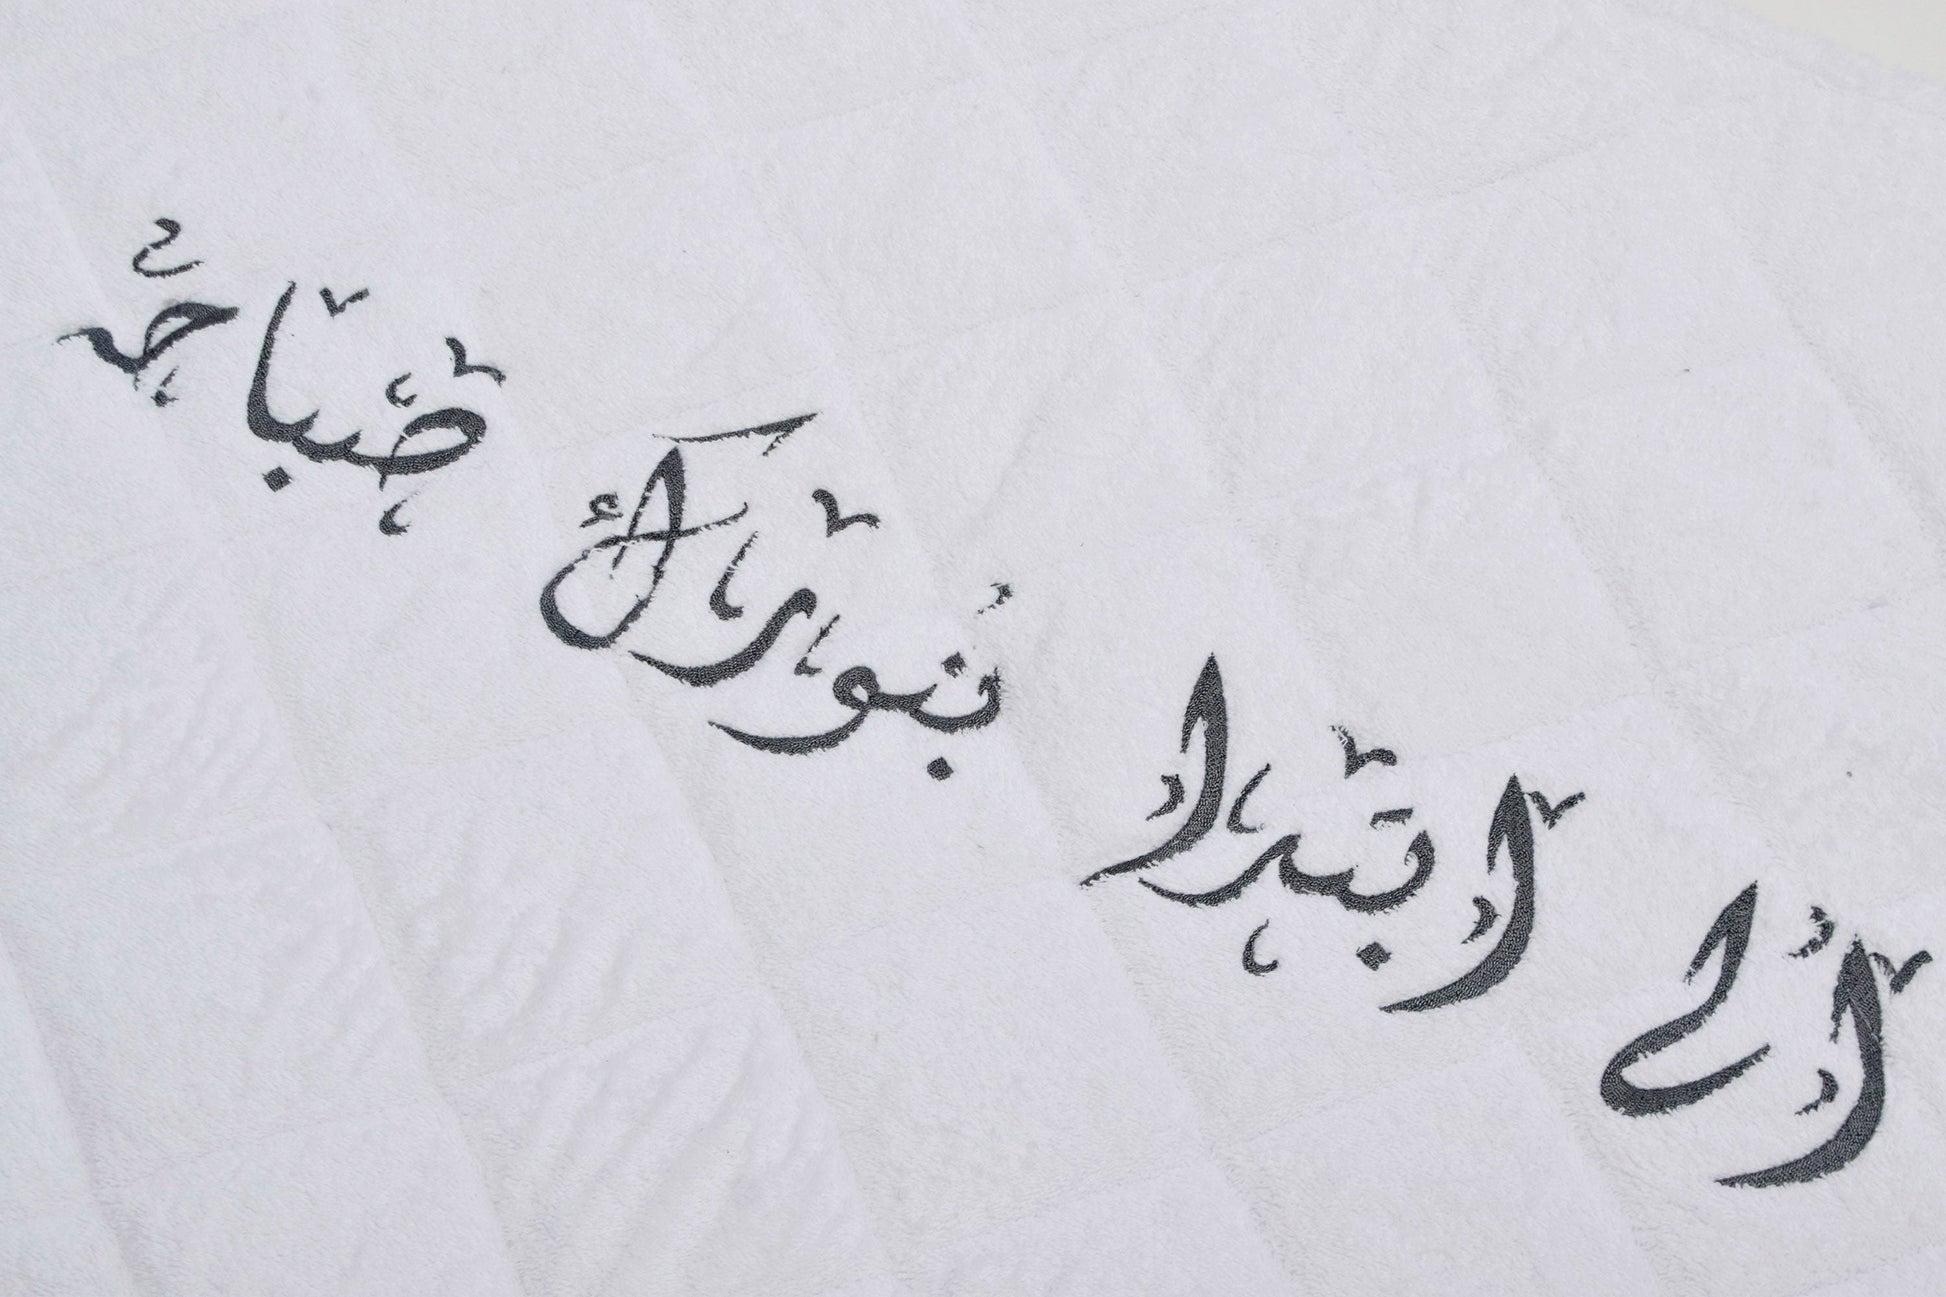 ألي ابتدا بنورك صباحه